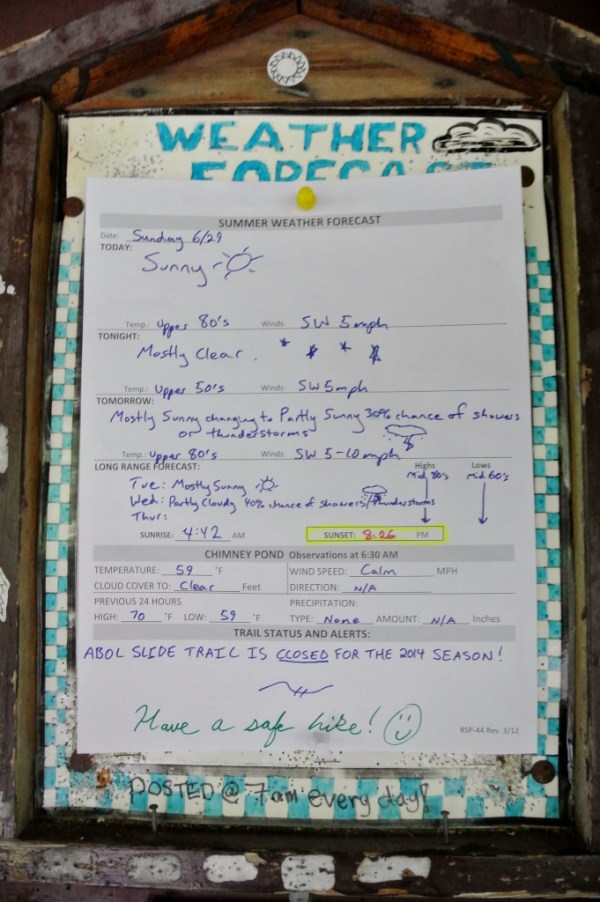 WEATHER
FORECAST
SUMMER WEATHER FORECAST
Date: Sunday 6/29
TODAY:
Sunny
Temp.: Upper 80's Winds: SW 5 mph
TONIGHT:
Mostly Clear.
Temp.: Upper 50's Winds: SW 5mph
TOMORROW:
Mostly Sunny changing to Partly Sunny 30% chance of showers
or thunderstorms
Temp.: Upper 80's Winds: SW 5-10 mph
LONG RANGE FORECAST: Highs Lows
Tue: Mostly Sunny Mid 80's Mid 60's
Wed: Partly Cloudy 40% chance of showers/thunderstorms
Thur:
SUNRISE: 4:42 AM SUNSET: 8:26 PM
CHIMNEY POND Observations at 6:30 AM
TEMPERATURE: 59 °F WIND SPEED: Calm MPH
CLOUD COVER TO: Clear Feet DIRECTION: N/A
PREVIOUS 24 HOURS PRECIPITATION:
HIGH: 70 °F LOW: 59 °F TYPE: None AMOUNT: N/A Inches
TRAIL STATUS AND ALERTS:
ABOL SLIDE TRAIL IS CLOSED FOR THE 2014 SEASON!
Have a safe hike!
BSP-44 Rev. 3/12
POSTED @ 7am every day!